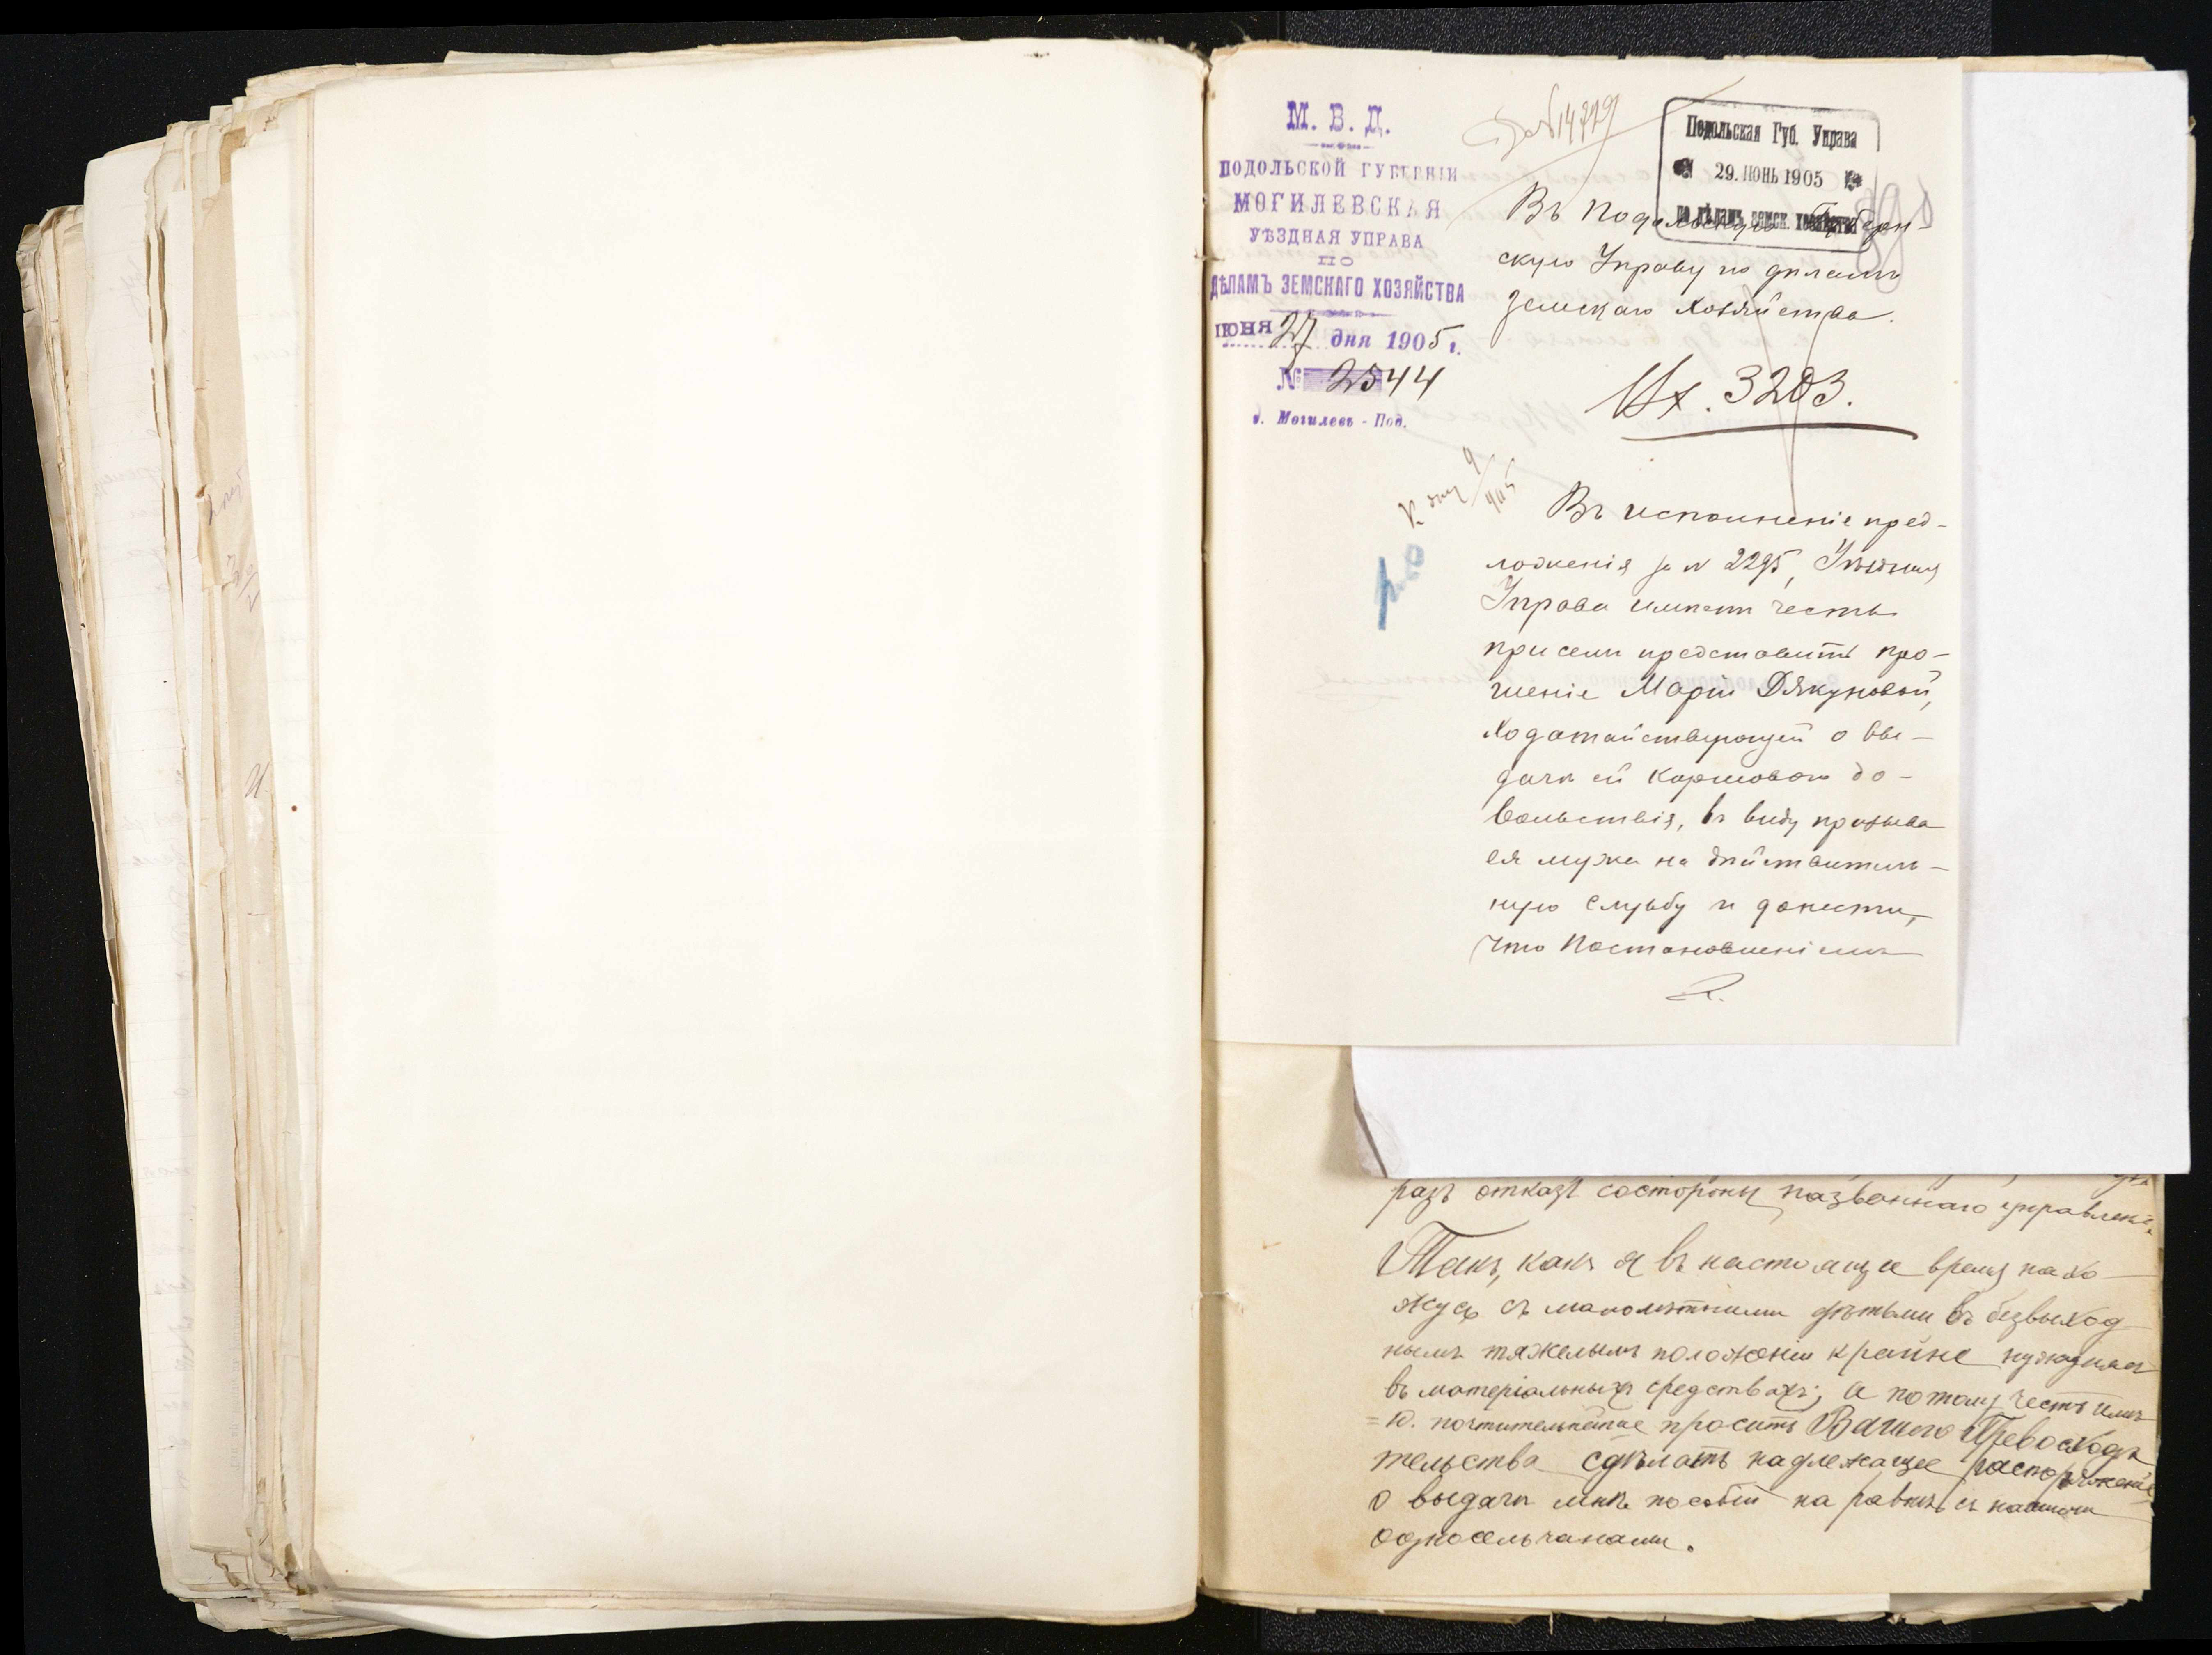 М. В. Д.
ПОДОЛЬСКОЙ ГУБЕРНІИ
МОГИЛЕВСКАЯ
УѢЗДНАЯ УПРАВА
ПО
ДѢЛАМЪ ЗЕМСКАГО ХОЗЯЙСТВА
ІЮНЯ 27 дня 1905 г.
№ 2544
г. Могилевъ - Под.
Подольская Губ. Управа
29. ІЮНЬ 1905
по дѣламъ земск. хозяйства
Въ Подольскую Губерн-
скую Управу по дѣламъ
Земскаго Хозяйства.
Вх. 3203.
Въ исполненіе пред-
ложенія за № 2295, Уѣздная
Управа имѣетъ честь
при семъ представить про-
шеніе Маріи Дякуновой,
ходатайствующей о вы-
дачѣ ей кормового до-
вольствія, въ виду призыва
ея мужа на дѣйствитель-
ную службу и донести,
что Постановленіемъ
разъ отказъ состороны названнаго управленія.
Такъ, какъ я въ настоящее время нахо-
жусь съ малолѣтними дѣтьми въ безвыход
нымъ тяжелымъ положеніи крайне нуждаясь
въ матеріальныхъ средствахъ, а потому честь имѣ
=ю. почтительнѣйше просить Вашего Превосходи
тельства сдѣлать надлежащее распоряженіе
о выдачи мнѣ пособій на равнѣ съ нашими
односельчанами.